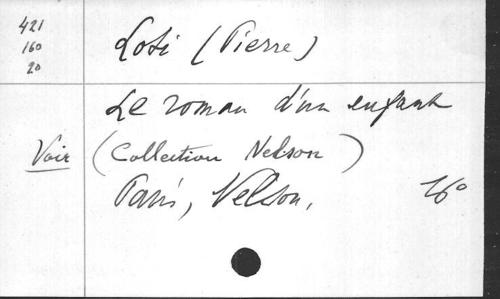 421
160
20
Loti (Pierre)
Le roman d'un enfant
Voir (Collection Nelson)
Paris, Nelson. 16°